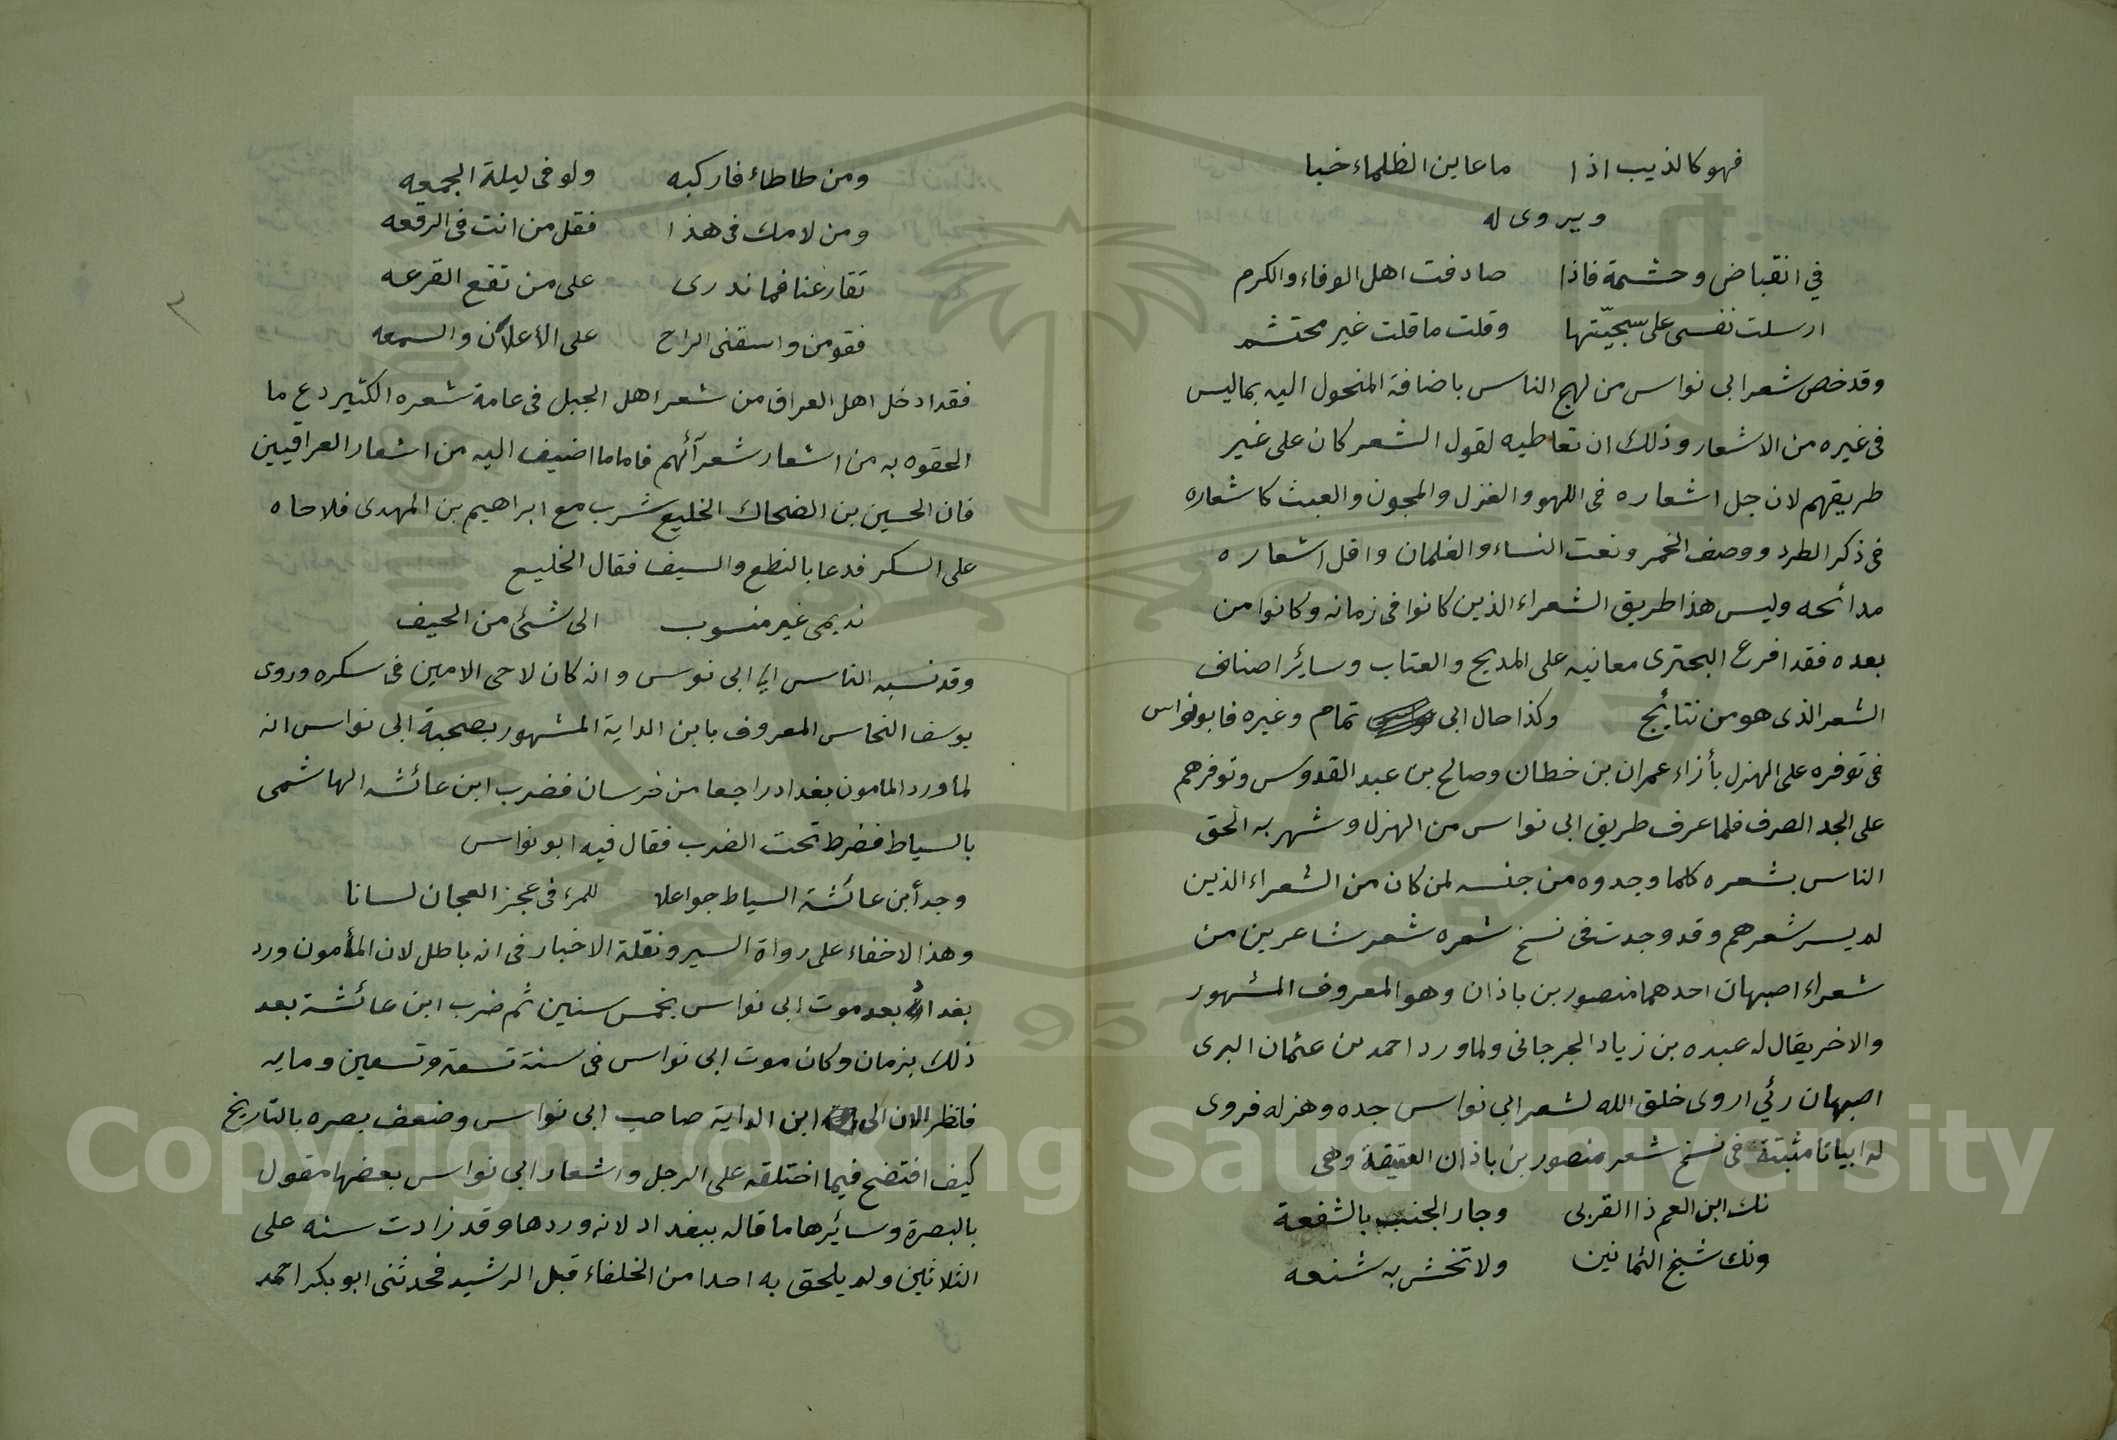 فهو كالذيب اذا ما عاين الظلماء خبا
ويروى له
في انقباض وحشمة فاذا صادفت اهل الوفاء والكرم
ارسلت نفسى على سجيّتها وقلت ما قلت غير محتشم
وقد خص شعر ابى نواس من لهج الناس باضافة المنحول اليه بماليس
فى غيره من الاشعار وذلك ان تعاطيه لقول الشعر كان على غير
طريقهم لان جل اشعاره فى اللهو والغزل والمجون والعبث كاشعاره
فى ذكر الطرد ووصف الخمر ونعت النساء والغلمان واقل اشعاره
مدائحه وليس هذا طريق الشعراء الذين كانوا فى زمانه وكانوا من
بعده فقد افرع البحترى معانيه على المديح والعتاب وسائر اصناف
الشعر الذى هو من نتائج وكذا حال ابى تمام وغيره فابو نواس
فى توفره على الهزل بأزاء عمران بن خطان وصالح بن عبد القدوس وتوفرهم
على الجد الصرف فلما عرف طريق ابى نواس من الهزل وشهر به الحق
الناس بشعره كلما وجدوه من جنسه لمن كان من الشعراء الذين
لم يسر شعرهم وقد وجدت فى نسخ شعره شعر شاعرين من
شعراء اصبهان احدهما منصور بن باذان وهو المعروف المشهور
والاخر يقال له عبده بن زياد الجرجانى ولما ورد احمد بن عثمان البرى
اصبهان رئي اروى خلق الله لشعر ابي نواس جده وهزله فروى
له ابياتا مثبتة فى نسخ شعر منصور بن باذان العتيقة وهى
نك ابن العم ذا القربى وجار الجنب بالشفعة
ونك شيخ الثمانين ولا تخش به شنعه
ومن طاطاء فاركبه ولو فى ليلة الجمعه
ومن لامك فى هذا فقل من انت فى الرقعه
تقارعنا فما ندرى على من تقع القرعه
فقومن واسقنى الراح على الأعلان والسمعه
فقد ادخل اهل العراق من شعر اهل الجبل فى عامة شعره الكثير دع ما
الحقوه به من اشعار شعرآئهم فاما ما اضيف اليه من اشعار العراقيين
فان الحسين بن الضحاك الخليع شرب مع ابراهيم بن المهدى فلاحاه
على السكر فدعا بالنطع والسيف فقال الخليع
نديمى غير منسوب الى شئ من الحيف
وقد نسبه الناس الي ابى نوس وانه كان لاحى الامين فى سكره وروى
يوسف النحاس المعروف بابن الداية المشهور بصحبة ابى نواس انه
لما ورد المامون بغداد راجعا من خرسان فضرب ابن عائشه الهاشمى
بالسياط فضرط تحت الضرب فقال فيه ابو نواس
وجد أبن عائشة السياط جواعلا للمرء فى عجز العجان لسانا
وهذا لاخفاء على رواة السير ونقلة الاخبار فى انه باطل لان المأمون ورد
بغداد بعد موت ابى نواس بخمس سنين ثم ضرب ابن عائشة بعد
ذلك بزمان وكان موت ابى نواس فى سنة تسعة وتسعين ومايه
فانظر الان الى ابن الداية صاحب ابى نواس وضعف بصره بالتاريخ
كيف افتضح فيما اختلقه على الرجل واشعار ابى نواس بعضها مقول
بالبصرة وسائرها ما قاله ببغداد لانه وردها وقد زادت سنه على
الثلاثين ولم يلحق به احدا من الخلفاء قبل الرشيد فحدثنى ابو بكر احمد
٣
Copyright © King Saud University
1957